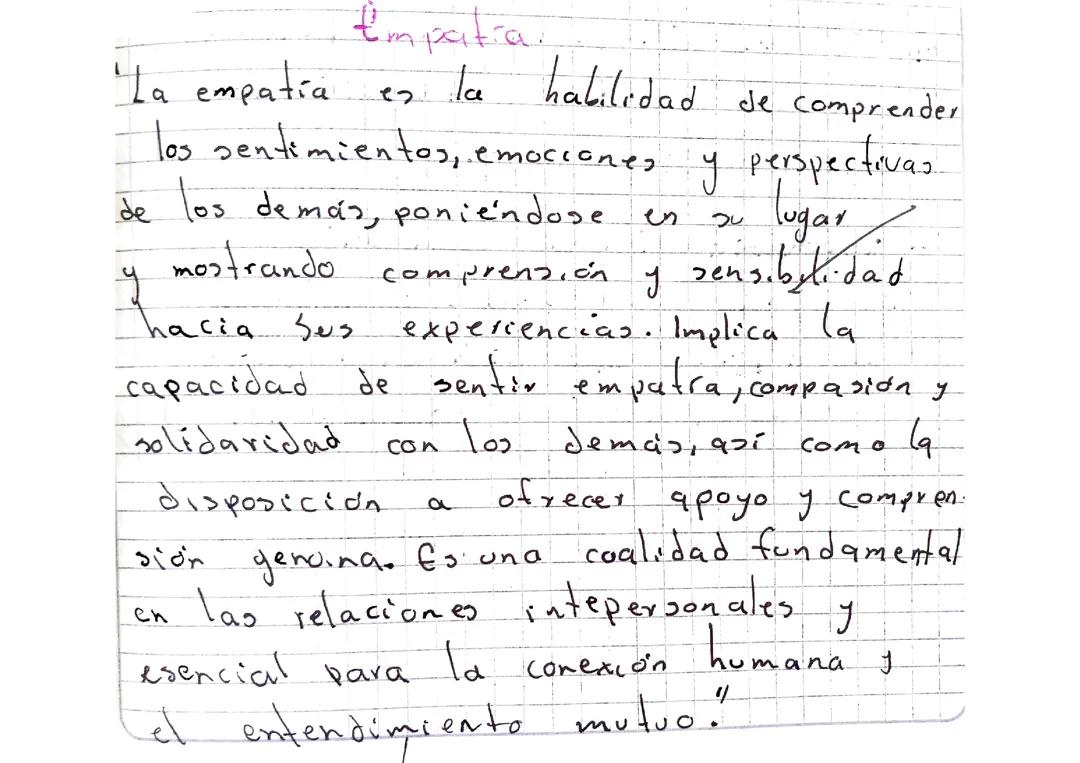 Empatía.
"La empatía es la habilidad de comprender
los sentimientos, emociones y perspectivas
de los demás, poniéndose en su lugar
y mostrando comprensión y sensibilidad
hacia sus experiencias. Implica la
capacidad de sentir empatía, compasión y
solidaridad con los demás, así como la
disposición a ofrecer apoyo y compren-
sión genuina. Es una coalidad fundamental
en las relaciones intepersonales y
esencial para la conexión humana y
el entendimiento mutuo."